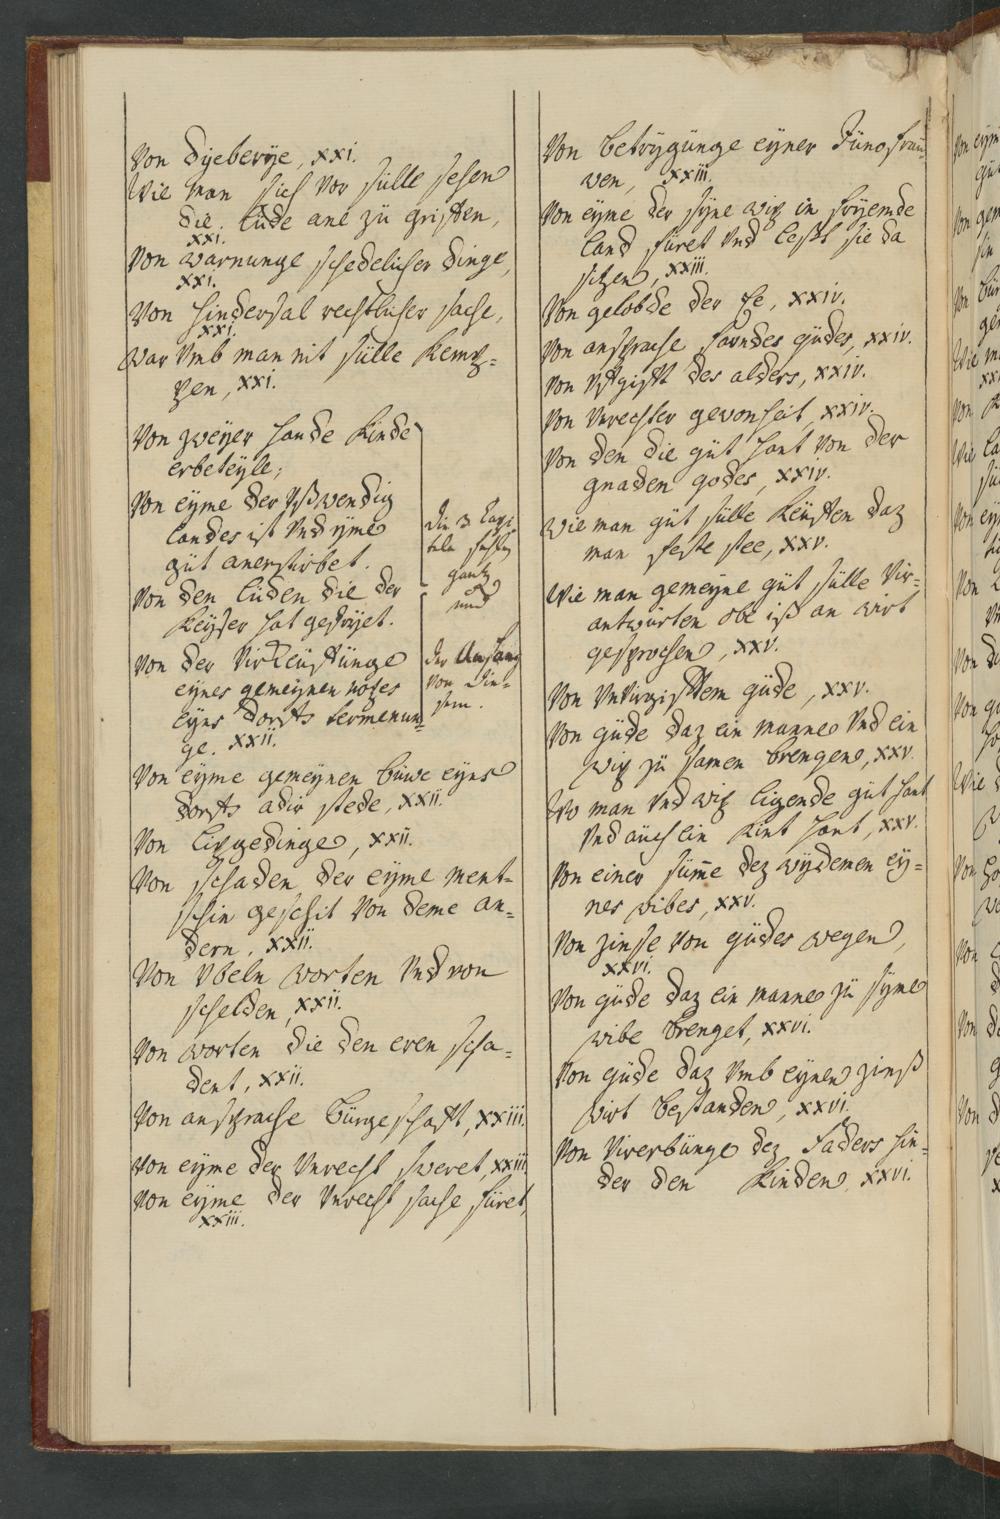 Von dyeberye, xxi.
Wie man sich vor sülle sehen
die lüde ane zü griffen,
xxi.
Von warnunge schedelicher dinge,
xxi.
Von hindersal rechtlicher sache,
xxi.
War vmb man nit sülle kemp=
pen, xxi.
Von zweyer hande kinde
erbeteyle;
Von eyme der vßwendig
landes ist vnd yme
güt anerstirbet.
Von den lüden die der
keyser hat gefryet.
Von der virkeuffünge
eynes gemeynen notzes
eyns dorffs termenun=
ge. xxii.
die 3 Capi
teln fehlen
gantz
und
der Anfang
von die=
sem.
Von eyme gemeynen büwe eyns
dorffs adir stede, xxii.
Von lipgedinge, xxii.
Von schaden der eyme ment=
schin geschit von deme an=
dern, xxii.
Von vbeln worten vnd von
schelden, xxii.
Von worten die den eren scha=
dent, xxii.
Von ansprache bürgeschafft, xxiii.
Von eyme der vnrecht sweret, xxiii
Von eyme der vnrecht sache füret,
xxiii.
Von betrygünge eyner Juncfrau=
wen, xxiii.
Von eyme der syne wip in fryemde
land füret vnd lesst sie da
sitzen, xxiii.
Von gelobde der Ee, xxiv.
Von ansprache farndes gudes, xxiv.
Von vffgifft des alders, xxiv.
Von vnrechter gewonheit, xxiv.
Von den die güt hant von der
gnaden godes, xxiv.
Wie man güt sülle keuffen daz
man feste stee, xxv.
Wie man gemeyne güt sülle vir=
antwürten obe iß an wirt
gesprochen, xxv.
Von vnvirgifftem güde, xxv.
Von güde daz ein manne vnd ein
wip zü samen brengen, xxv.
Wo man vnd wip ligende güt hant
vnd auch ein kint hant, xxv.
Von einer süm̄e dez wydemen ey=
nes wibes, xxv.
Von zinse von güdes wegen,
xxvi.
Von güde daz ein manne zü syme
wibe brenget, xxvi.
Von güde daz vmb eynen zinß
wirt bestanden, xxvi.
Von virerbünge dez faders hin=
der den kinden, xxvi.